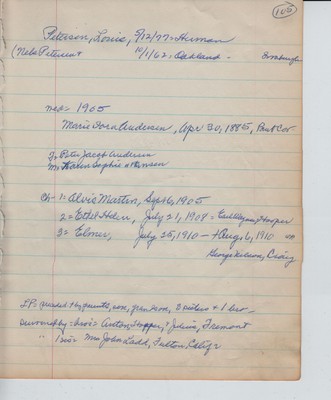 105
Peterson, Louis, 5/12/77 = Herman
(Nels Peterson + 10/1/62 = Oakland -
med = 1905
Marie Dora Andersen, Apr 30, 1885, Burt Co
F = Peter Jacob Andersen
M = Karen Sophie
Ch 1 = Alvie Martin, Sept 6, 1905
2 = Ethel Helen, July 21, 1908 = Hooper
3 = Elmer, July 25, 1910 - + Aug 6, 1910
George Craig
LP = preceded by parents, son, gran. 3 sisters + 1 bro -
Survived by = bro's Anton, Hopper, ? Julius, Fremont
" 1 sis = Mrs John Ladd, Fulton, Calif